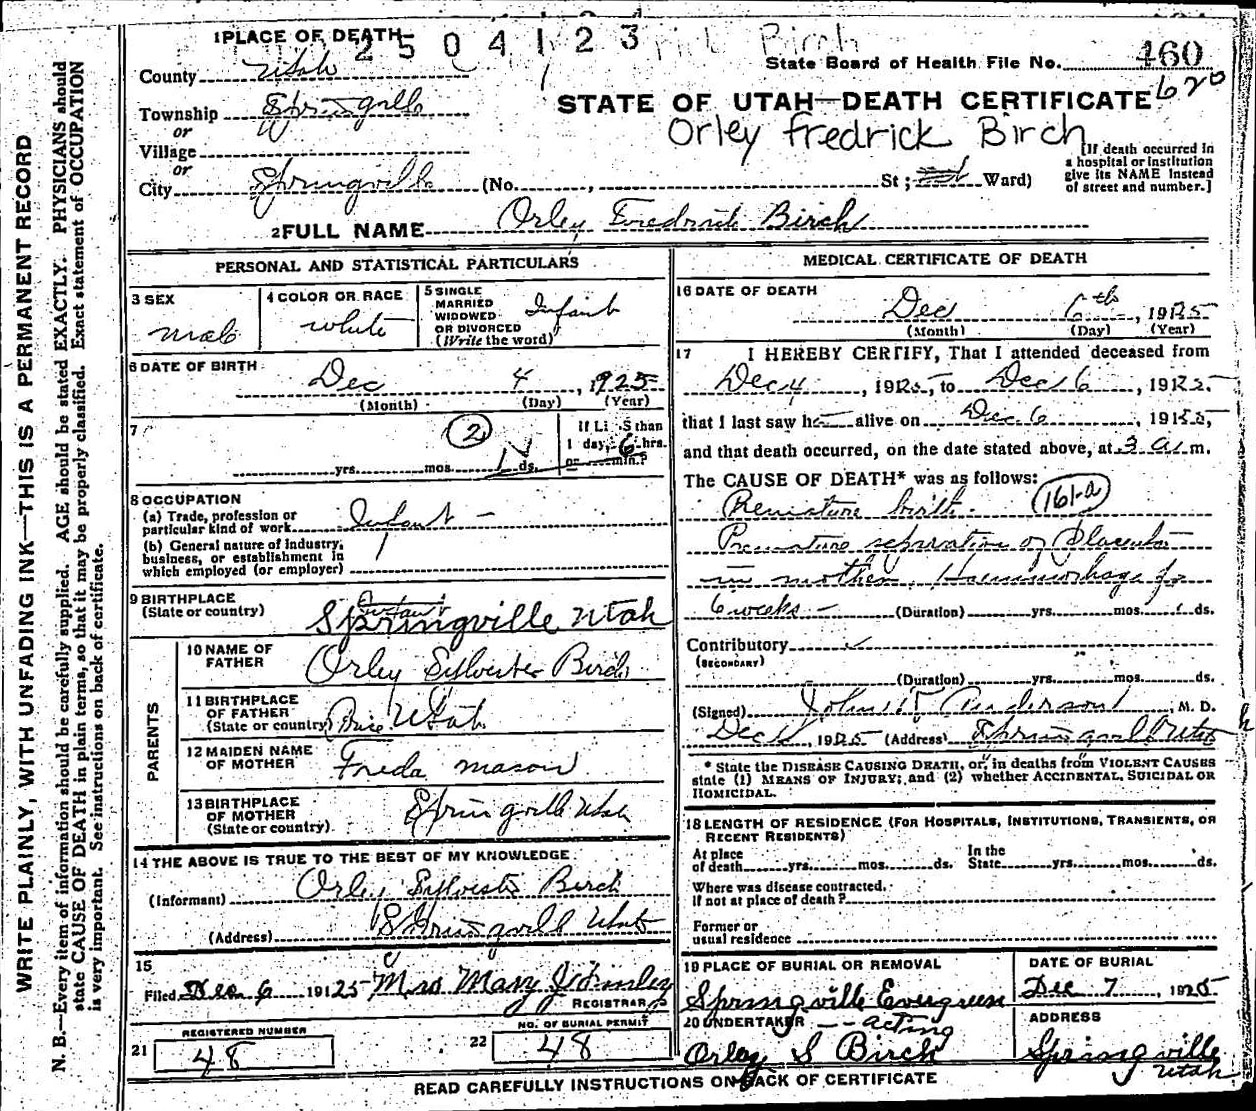 1 PLACE OF DEATH 2504123 Birch
State Board of Health File No. 460
620
County Utah
Township Springville
or
Village
or
City Springville (No. , St ; Ward)
STATE OF UTAH—DEATH CERTIFICATE
Orley Fredrick Birch
[If death occurred in
a hospital or institution
give its NAME instead
of street and number.]
2 FULL NAME Orley Fredrick Birch
PERSONAL AND STATISTICAL PARTICULARS
3 SEX
male
4 COLOR OR RACE
white
5 SINGLE
MARRIED
WIDOWED
OR DIVORCED
(Write the word)
Infant
6 DATE OF BIRTH
Dec 4, 1925
(Month) (Day) (Year)
7
2
yrs. mos. 1 ds.
If LESS than
1 day, 6 hrs.
or min.?
8 OCCUPATION
(a) Trade, profession or
particular kind of work Infant -
(b) General nature of industry,
business, or establishment in
which employed (or employer)
9 BIRTHPLACE
(State or country)
Infant
Springville Utah
PARENTS
10 NAME OF
FATHER Orley Sylvester Birch
11 BIRTHPLACE
OF FATHER
(State or country) Price Utah
12 MAIDEN NAME
OF MOTHER Freda Mason
13 BIRTHPLACE
OF MOTHER
(State or country) Springville Utah
14 THE ABOVE IS TRUE TO THE BEST OF MY KNOWLEDGE
(Informant) Orley Sylvester Birch
(Address) Springville Utah
15
Filed Dec 6 1925 Mrs Mary J
REGISTRAR
REGISTERED NUMBER
21 48
NO. OF BURIAL PERMIT
22 48
MEDICAL CERTIFICATE OF DEATH
16 DATE OF DEATH
Dec 6th, 1925
(Month) (Day) (Year)
17 I HEREBY CERTIFY, That I attended deceased from
Dec 4, 1925, to Dec 6, 1925
that I last saw h alive on Dec 6, 1925,
and that death occurred, on the date stated above, at 3 A.m.
The CAUSE OF DEATH* was as follows:
161-a
Premature birth.
Premature separation of Placenta
in mother. Haemmorhage for
6 weeks - (Duration) yrs. mos. 1 ds.
Contributory
(SECONDARY)
(Duration) yrs. mos. ds.
(Signed) John Anderson, M. D.
Dec, 1925 (Address) Springville Utah
* State the DISEASE CAUSING DEATH, or, in deaths from VIOLENT CAUSES
state (1) MEANS OF INJURY; and (2) whether ACCIDENTAL, SUICIDAL OR
HOMICIDAL.
18 LENGTH OF RESIDENCE (FOR HOSPITALS, INSTITUTIONS, TRANSIENTS, OR
RECENT RESIDENTS)
At place
of death yrs. mos. ds. In the
State yrs. mos. ds.
Where was disease contracted,
if not at place of death?
Former or
usual residence
19 PLACE OF BURIAL OR REMOVAL
Springville Evergreen
DATE OF BURIAL
Dec 7, 1925
20 UNDERTAKER -- acting
Orley S Birch
ADDRESS
Springville
Utah
READ CAREFULLY INSTRUCTIONS ON BACK OF CERTIFICATE
WRITE PLAINLY, WITH UNFADING INK—THIS IS A PERMANENT RECORD
N. B.—Every item of information should be carefully supplied. AGE should be stated EXACTLY. PHYSICIANS should
state CAUSE OF DEATH in plain terms, so that it may be properly classified. Exact statement of OCCUPATION
is very important. See instructions on back of certificate.